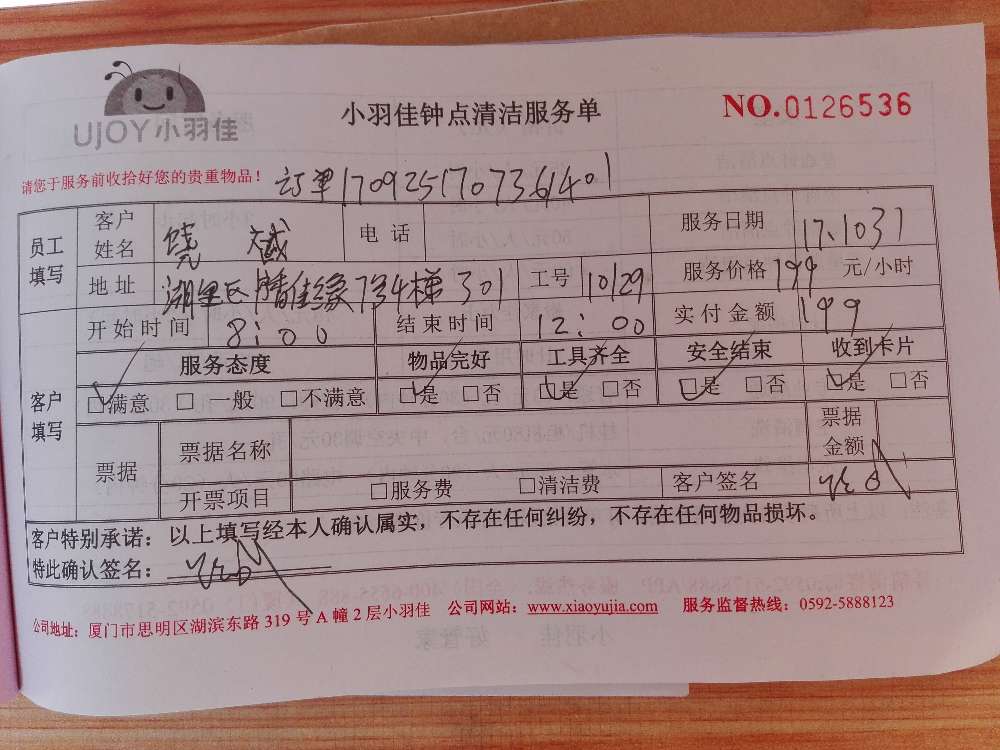 UJOY小羽佳
小羽佳钟点清洁服务单
NO.0126536
请您于服务前收拾好您的贵重物品！ 订单1709251707361401
员工填写 客户姓名 饶 电话 服务日期 17.1031
地址 湖里区 佳缘734梯301 工号 10129 服务价格 199 元/小时
开始时间 8：00 结束时间 12：00 实付金额 199
客户填写 服务态度 物品完好 工具齐全 安全结束 收到卡片
☑满意 □ 一般 □不满意 ☑是 □否 ☑是 □否 ☑是 □否 ☑是 □否
票据 票据名称 票据金额
开票项目 □服务费 □清洁费 客户签名
客户特别承诺：以上填写经本人确认属实，不存在任何纠纷，不存在任何物品损坏。
特此确认签名：
公司地址：厦门市思明区湖滨东路 319 号 A 幢 2 层小羽佳 公司网站：www.xiaoyujia.com 服务监督热线：0592-5888123